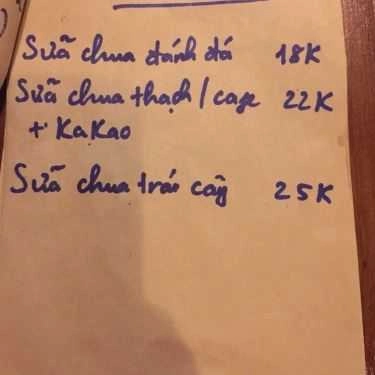 Sữa chua đánh đá 18K
Sữa chua thạch / cafe 22K
+ KaKao
Sữa chua trái cây 25K